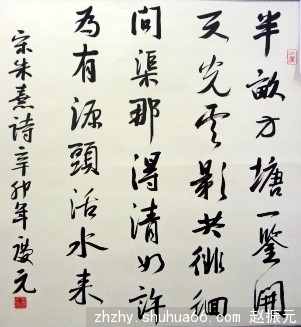 半畝方塘一鑒開
天光雲影共徘徊
問渠那得清如許
為有源頭活水來
宋朱熹詩辛卯年振元
zhzhy.shuhua66.com 赵振元